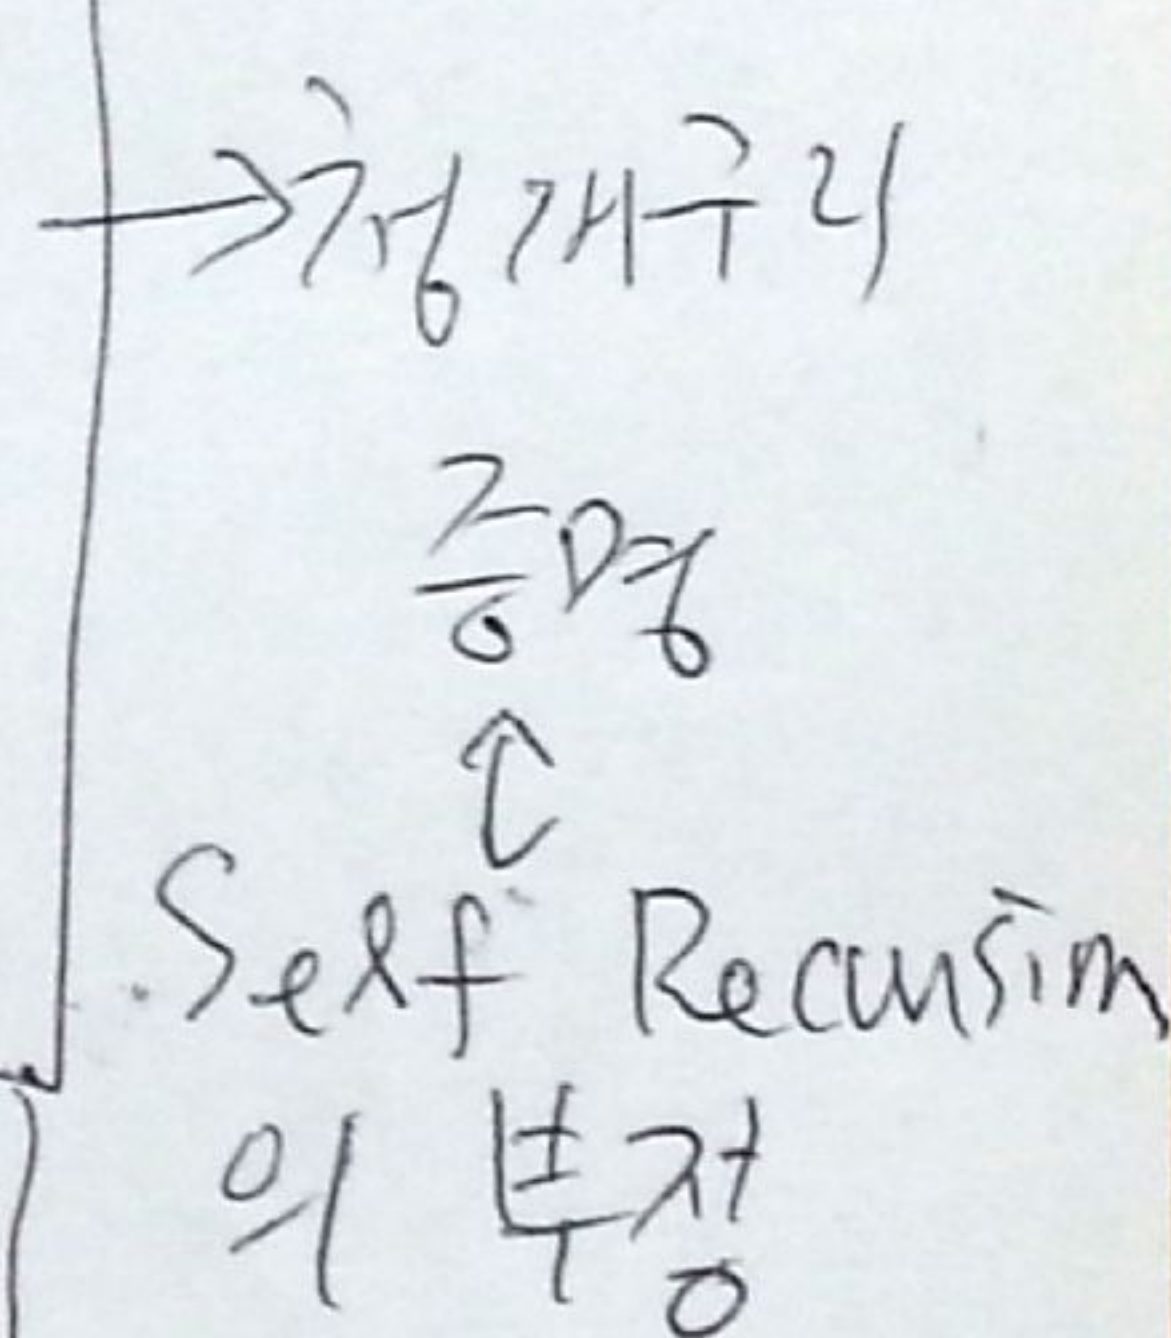 →청개구리
증명
↕
Self Recursion
의 부정